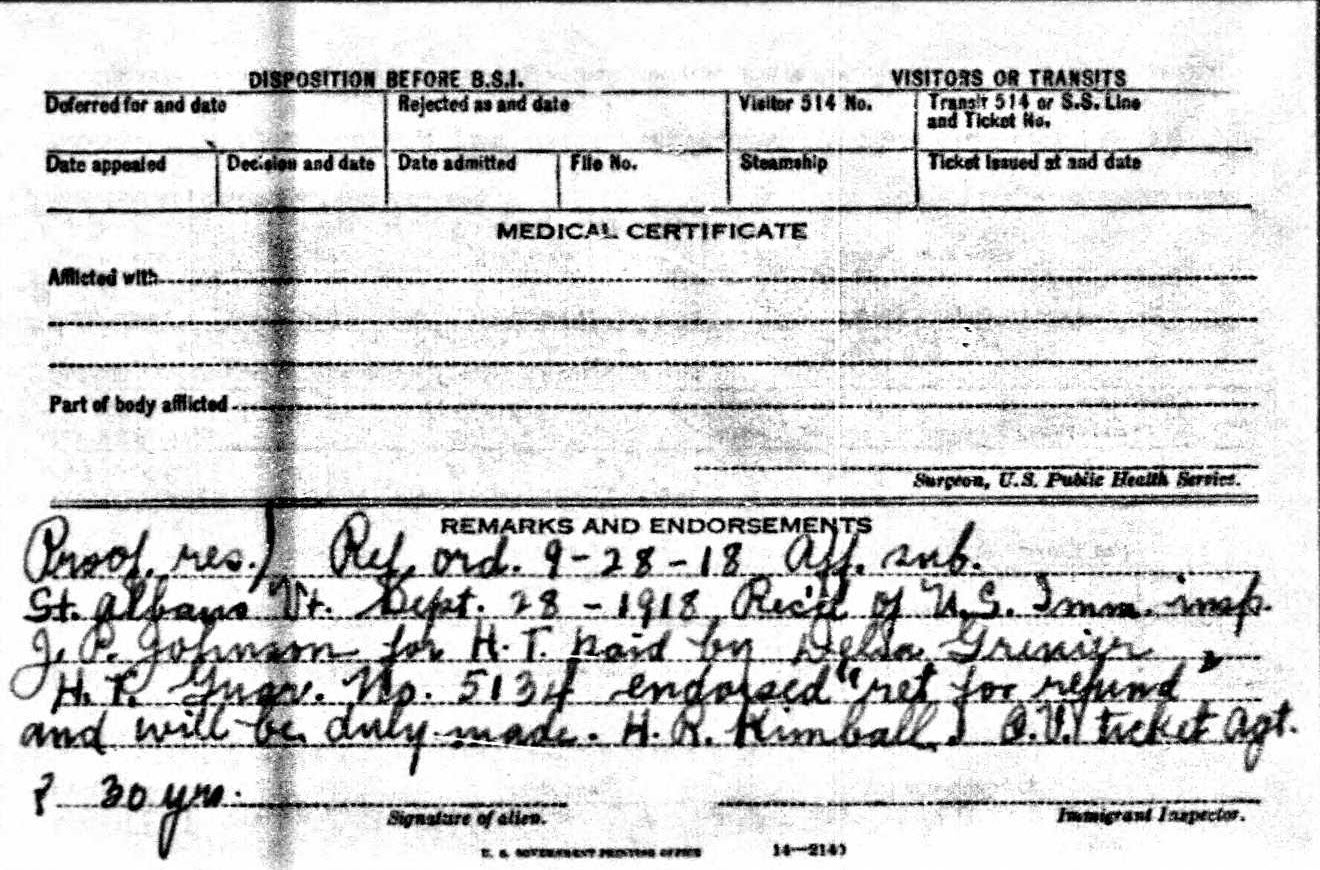 DISPOSITION BEFORE B.S.I. VISITORS OR TRANSITS
Deferred for and date Rejected as and date Visitor 514 No. Transit 514 or S.S. Line and Ticket No.
Date appealed Decision and date Date admitted File No. Steamship Ticket issued at and date
MEDICAL CERTIFICATE
Afflicted with
Part of body afflicted
Surgeon, U.S. Public Health Service.
REMARKS AND ENDORSEMENTS
Proof. res.) Ref. ord. 9-28-18 Aff. sub.
St. Albans Vt. Sept. 28 - 1918 Rec'd of U.S. Imm. insp.
J. P. Johnson for H.T. paid by Delia Grenier
H.T. Guar. No. 5134 endorsed "ret for refund"
and will be duly made. H. R. Kimball. C.V. ticket Agt.
? 30 yrs.
Signature of alien. Immigrant Inspector.
U. S. GOVERNMENT PRINTING OFFICE 14—2140